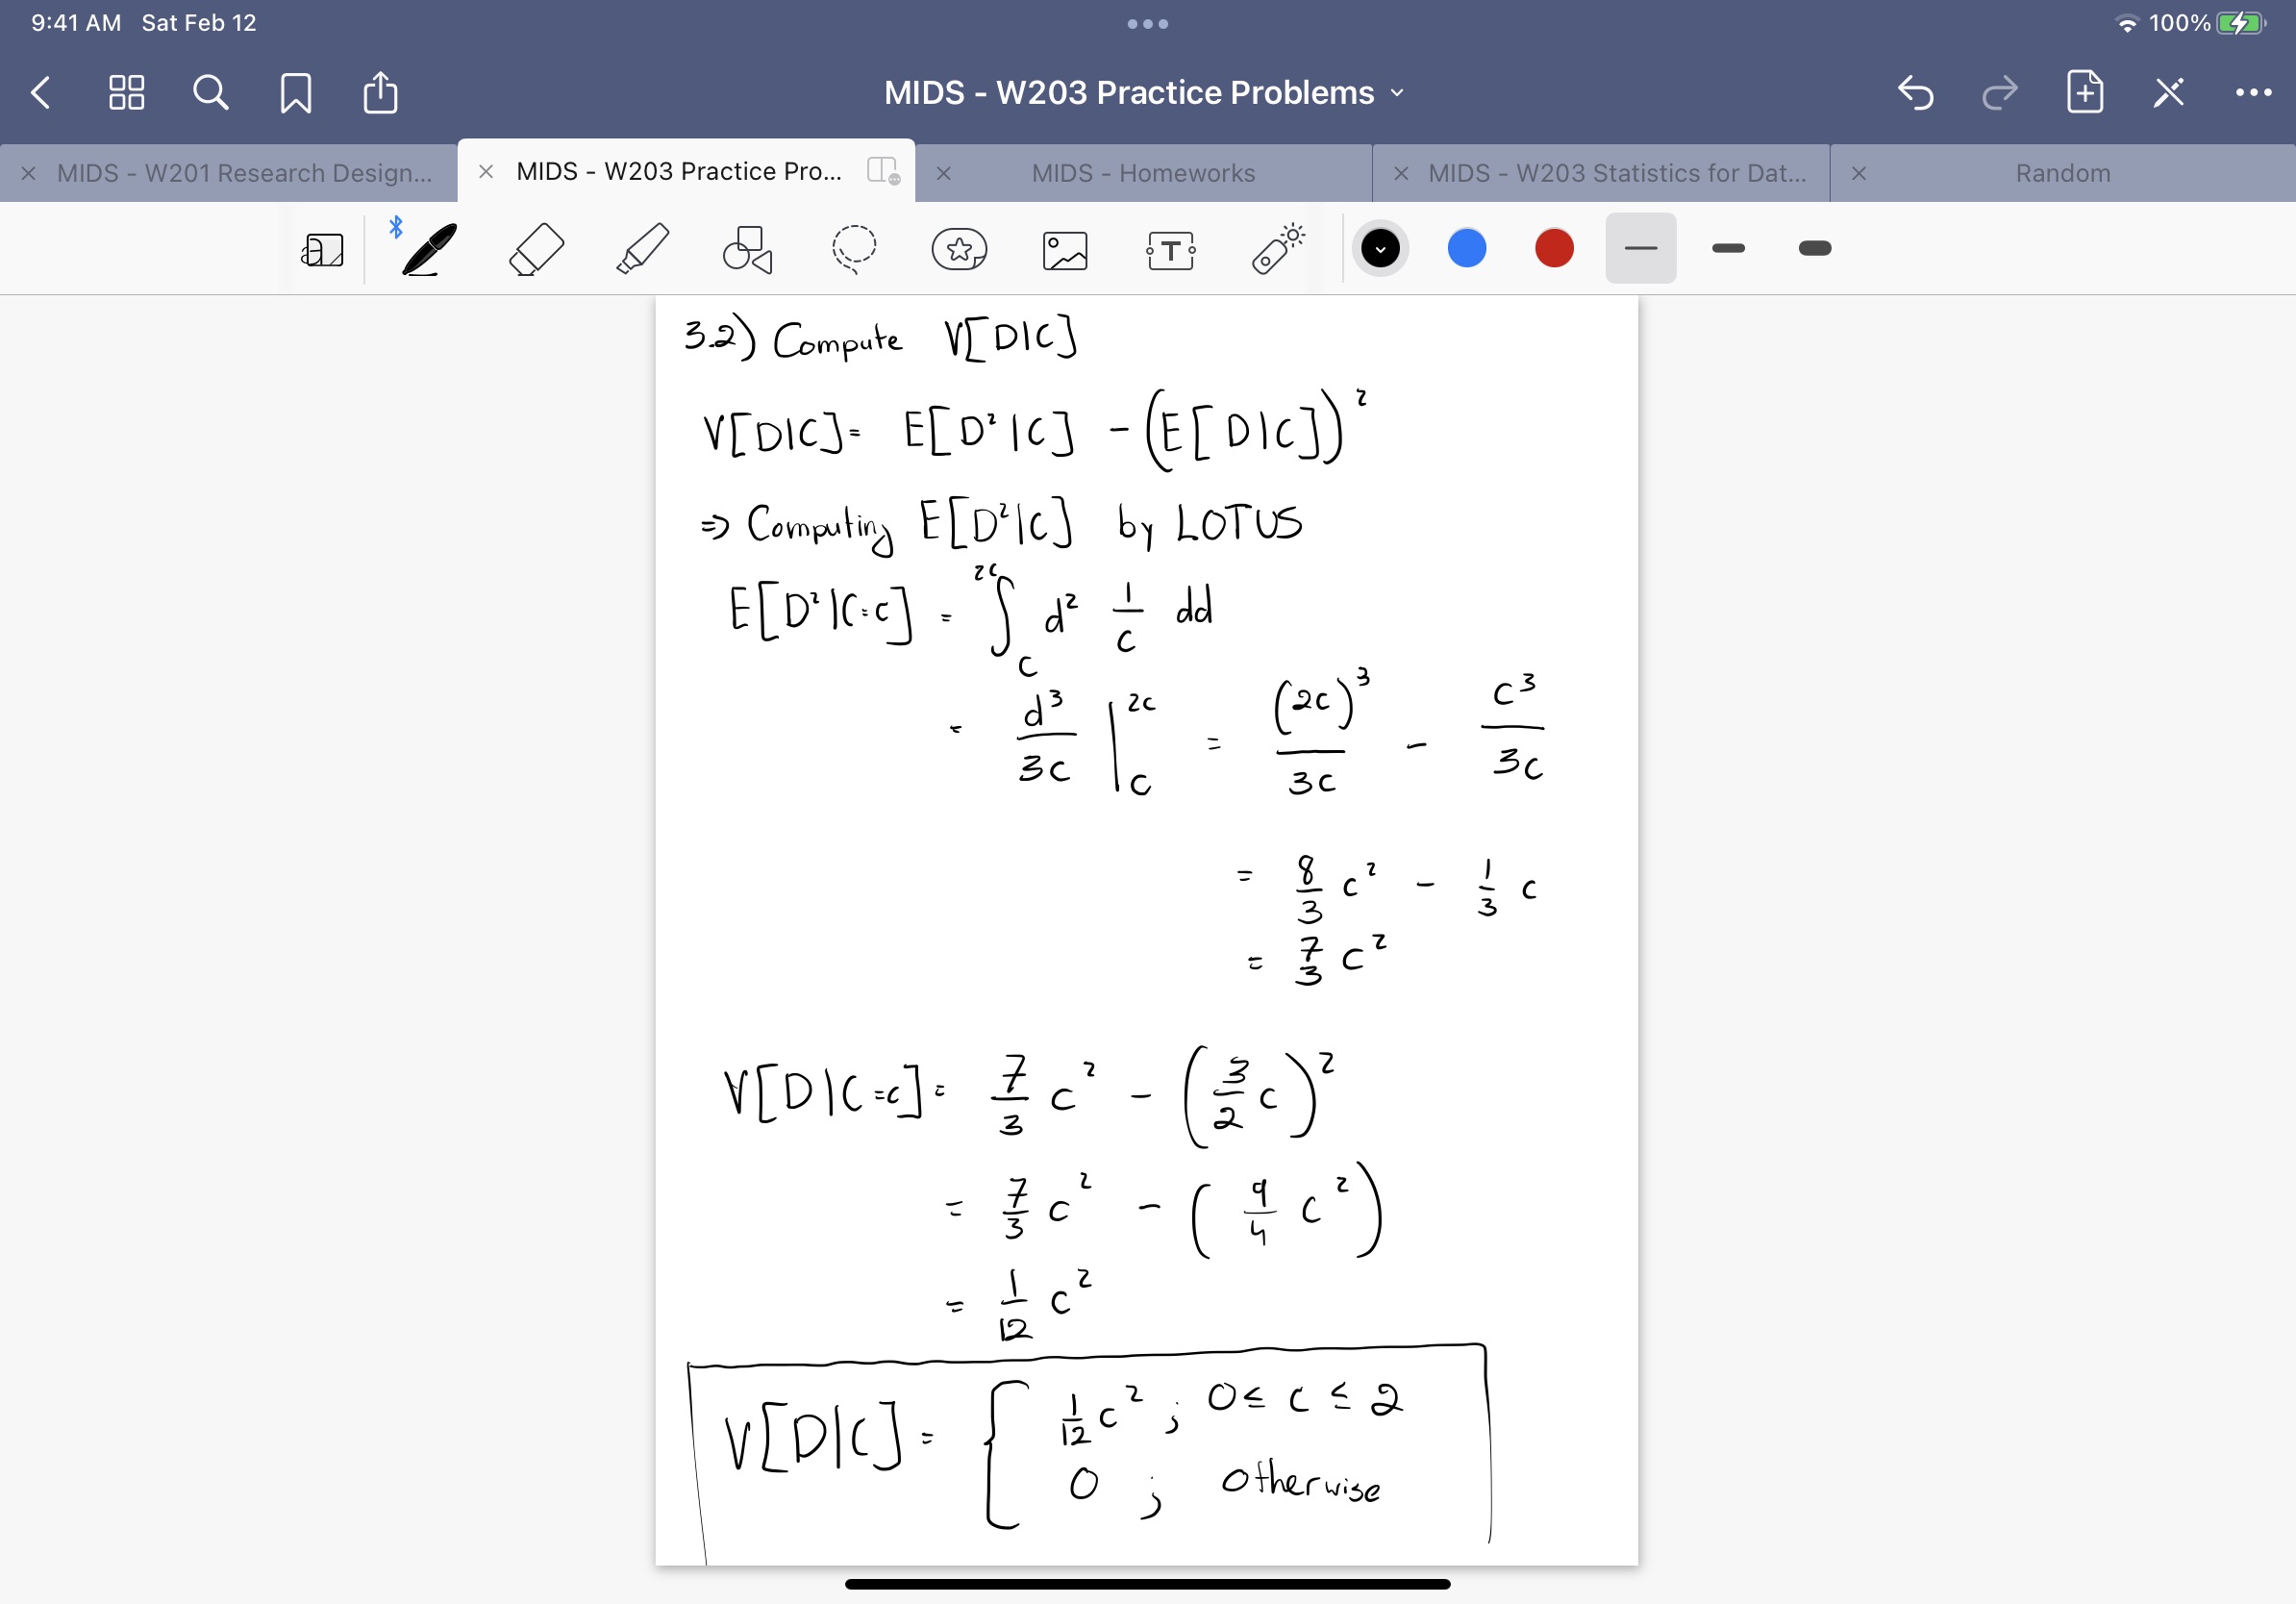 9:41 AM Sat Feb 12
100%
MIDS - W203 Practice Problems
MIDS - W201 Research Design...
MIDS - W203 Practice Pro...
MIDS - Homeworks
MIDS - W203 Statistics for Dat...
Random
3.2) Compute V[D|C]
V[D|C] = E[D²|C] - (E[D|C])²
⇒ Computing E[D²|C] by LOTUS
E[D²|C=c] = ∫_c^{2c} d² 1/c dd
= d³/3c |_c^{2c} = (2c)³/3c - c³/3c
= 8/3 c² - 1/3 c
= 7/3 c²
V[D|C=c] = 7/3 c² - (3/2 c)²
= 7/3 c² - (9/4 c²)
= 1/12 c²
V[D|C] = { 1/12 c² ; 0 ≤ c ≤ 2
0 ; otherwise